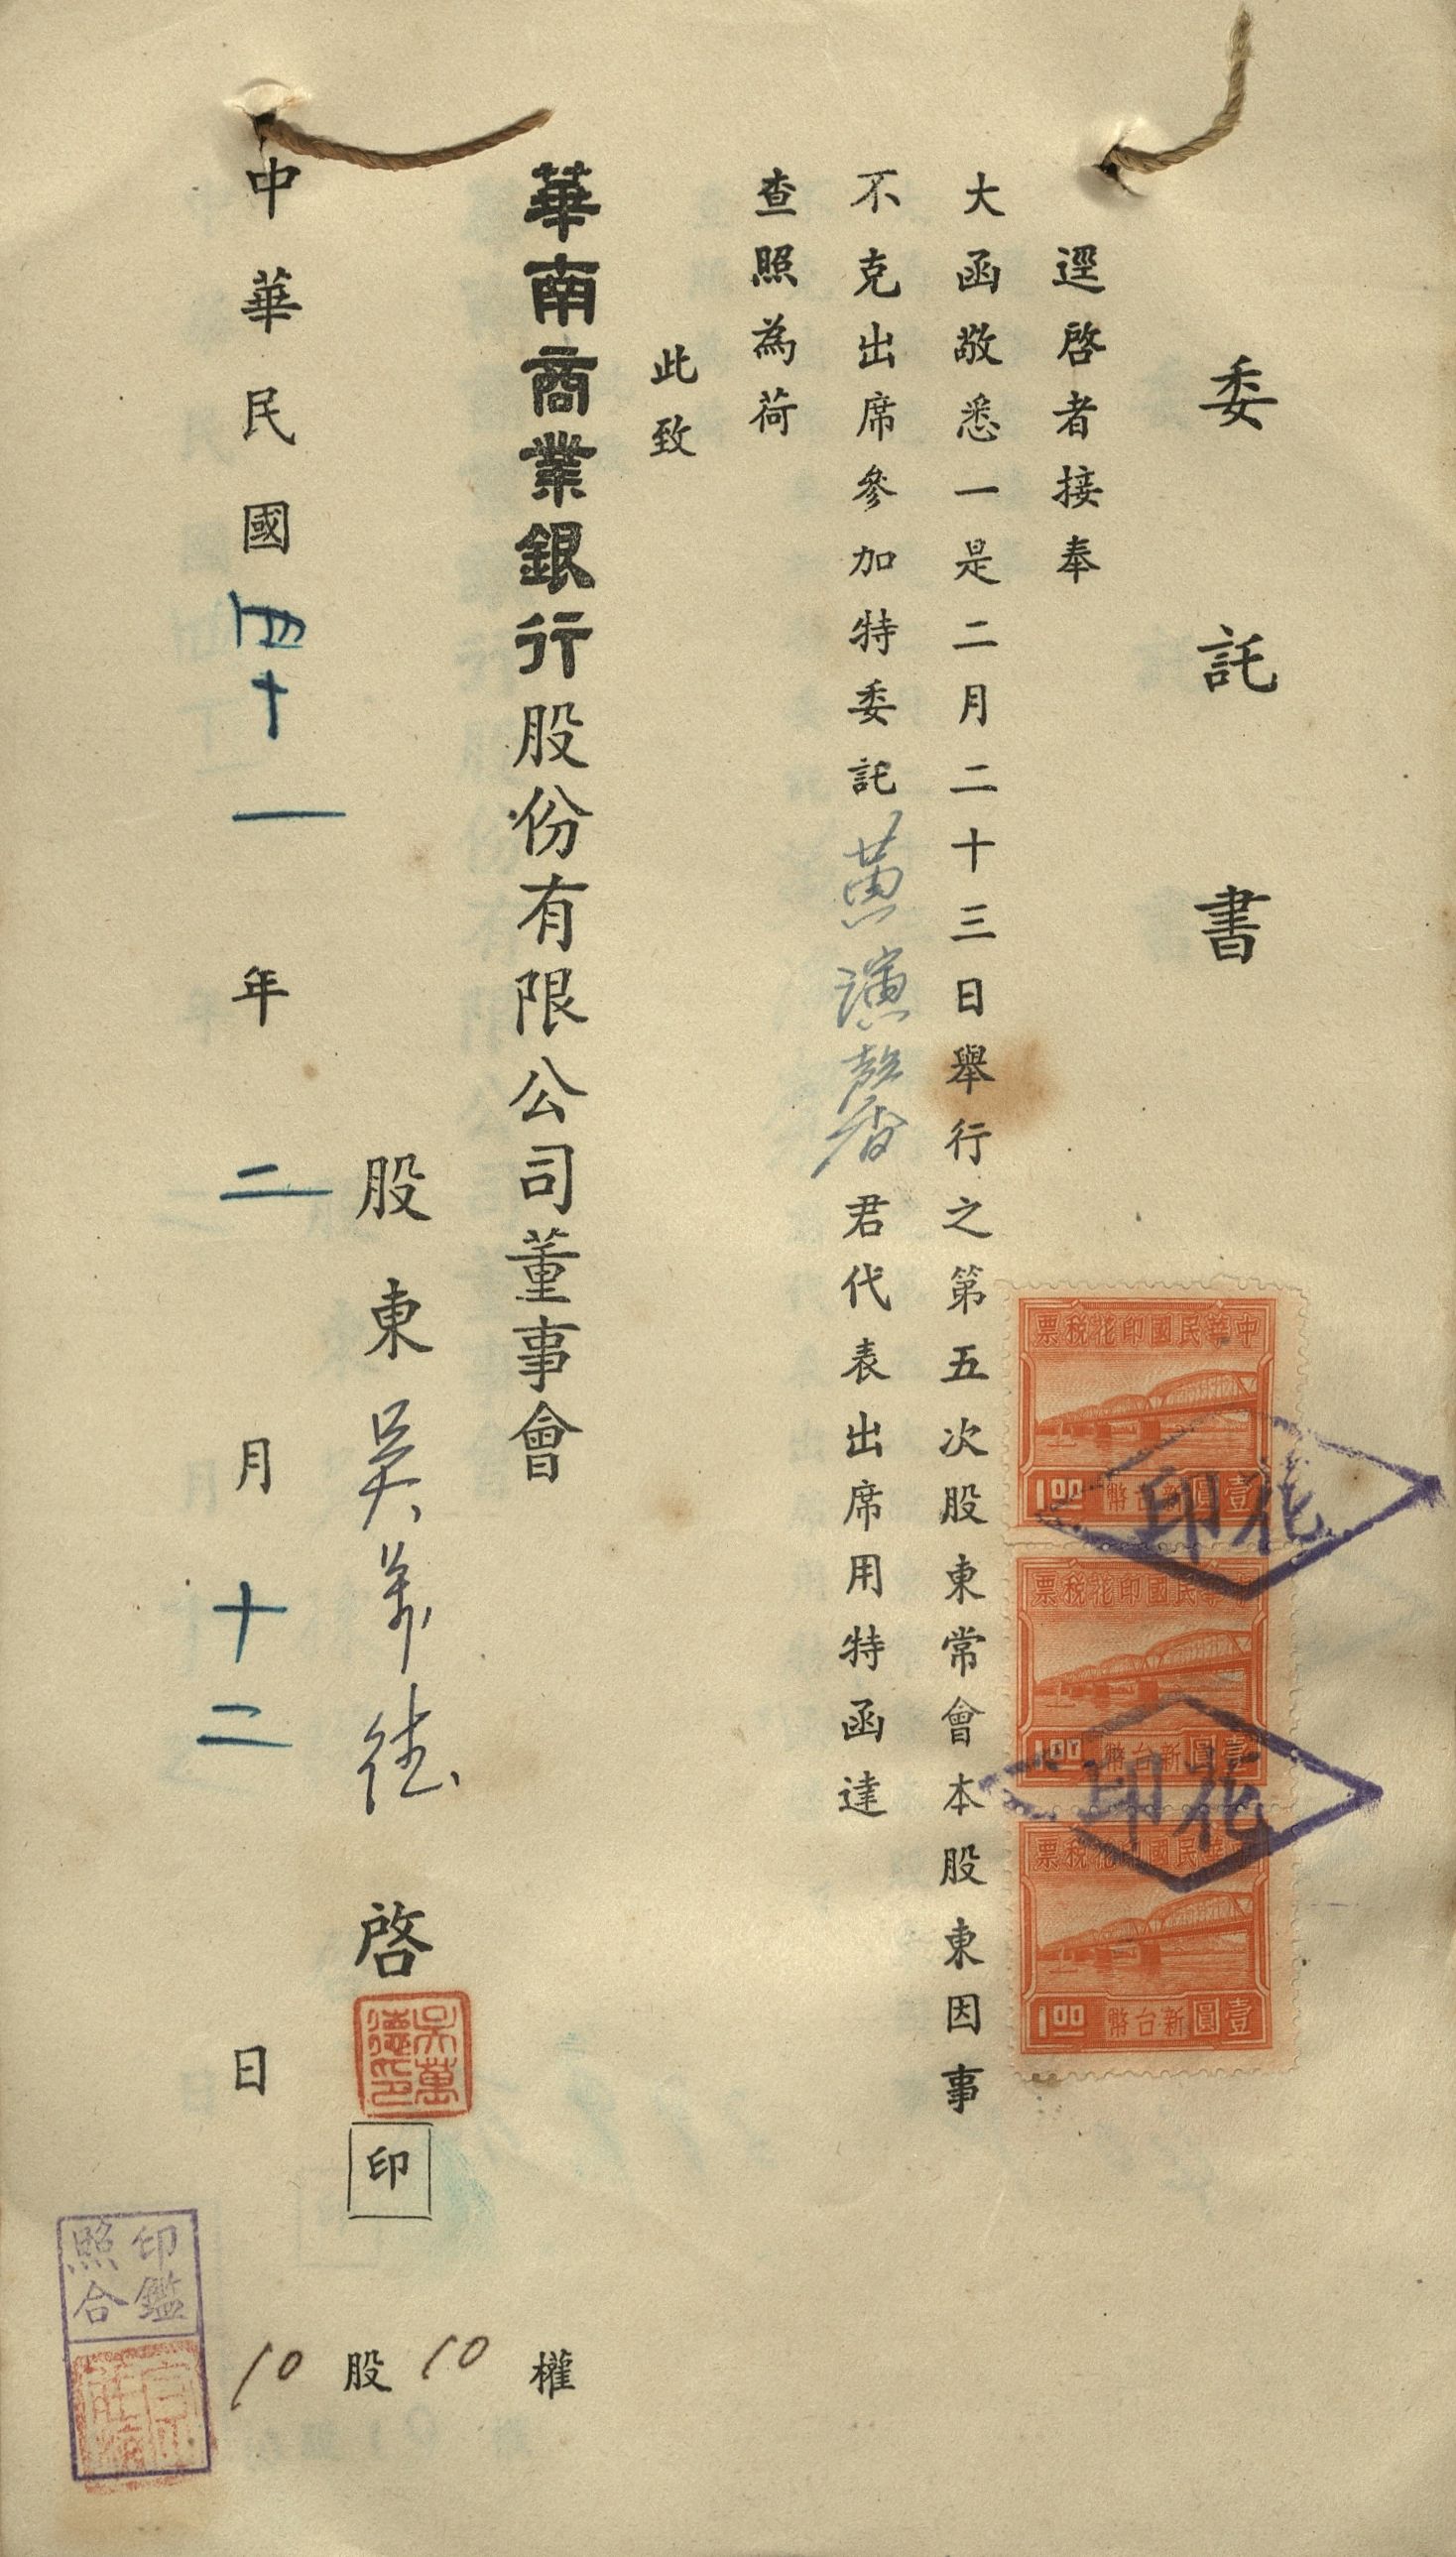 委託書
逕啓者接奉
大函敬悉一是二月二十三日舉行之第五次股東常會本股東因事
不克出席參加特委託黃演馨君代表出席用特函達
查照為荷
此致
華南商業銀行股份有限公司董事會
股東吳萬德啓
印
中華民國四十一年二月十二日
10股10權
中華民國印花稅票
1.00 新台幣壹圓
中華民國印花稅票
1.00 新台幣壹圓
中華民國印花稅票
1.00 新台幣壹圓
印花
印花
吳萬德印
印鑑
照合